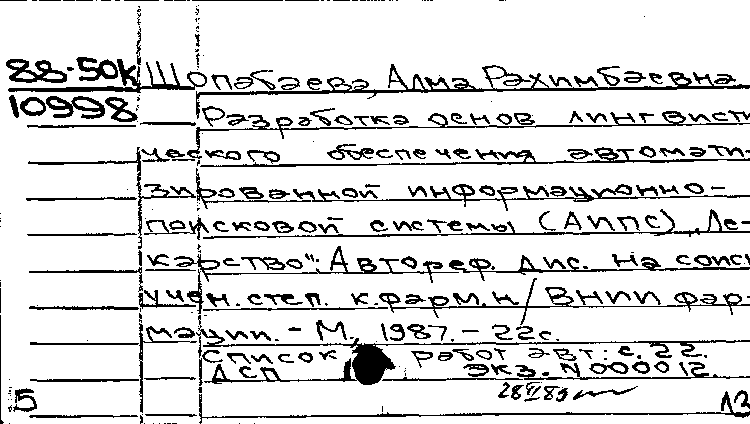 88-50к Шопабаева, Алма Рахимбаевна
10998
Разработка основ лингвисти
ческого обеспечения автомати-
зированной информационно-
поисковой системы (АИПС) "Ле-
карство": Автореф. дис. на соиск
учен. степ. к.фарм.н. / ВНИИ фар-
мации. - М., 1987. - 22с.
Список работ авт.: с. 22.
ДСП Экз. N 000012.
5 13